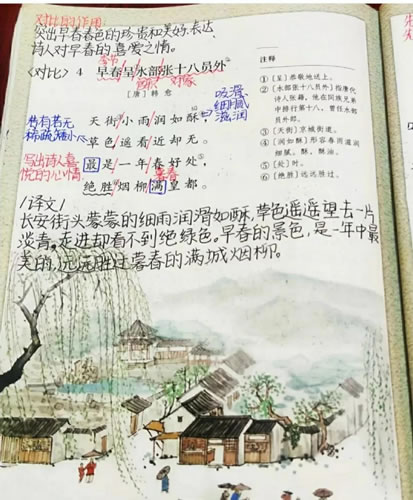 对比的作用:
突出早春春色的珍贵和美妙,表达
诗人对早春的喜爱之情。
季节
〈对比〉 4 早春呈水部张十八员外
[唐] 韩愈
天街小雨润如酥,
草色遥看近却无。
最是一年春好处,
绝胜烟柳满皇都。
细腻
滋润
若有若无
稀疏
写出诗人喜
悦的心情
暮春
注释
①〔呈〕恭敬地送上。
②〔水部张十八员外〕指唐代
诗人张籍,他在同族兄弟
中排行第十八,曾任水部
员外郎。
③〔天街〕京城街道。
④〔润如酥〕形容春雨滋润
细腻。酥,酥油。
⑤〔处〕时。
⑥〔绝胜〕远远胜过。
〔译文〕
长安街头蒙蒙的细雨润滑如酥,草色遥遥望去一片
淡青,走进却看不到绝绿色。早春的景色,是一年中最
美的,远远胜过暮春的满城烟柳。